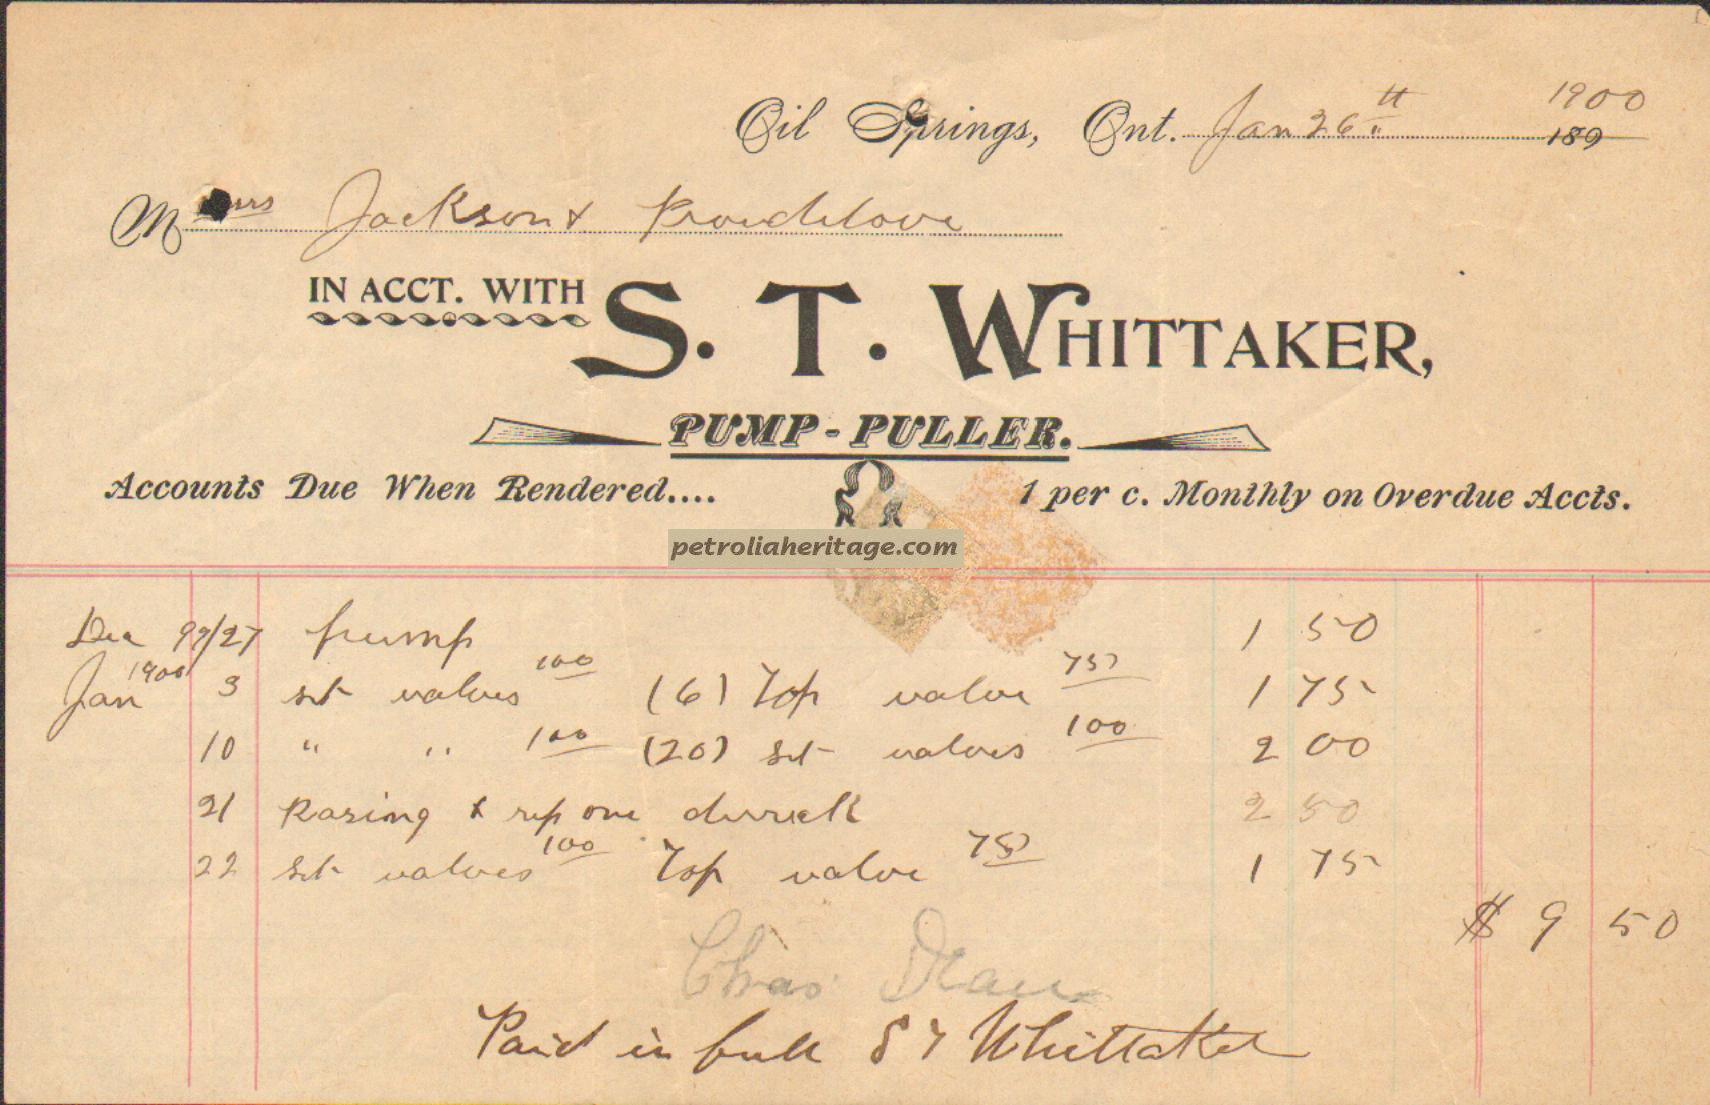 Oil Springs, Ont. Jan 26th 1900 189
Messrs Jackson & Proudlove
IN ACCT. WITH S. T. WHITTAKER,
PUMP-PULLER.
Accounts Due When Rendered.... 1 per c. Monthly on Overdue Accts.
petroliaheritage.com
Dec 99/27 pump 1 50
Jan 1900 3 set valves 100 (6) Top valve 75 1 75
10 " " 100 (20) set valves 100 2 00
21 Rasing & rep one derrick 2 50
22 set valves 100 Top valve 75 1 75
$ 9 50
Chas. Dean
Paid in full S T Whittaker